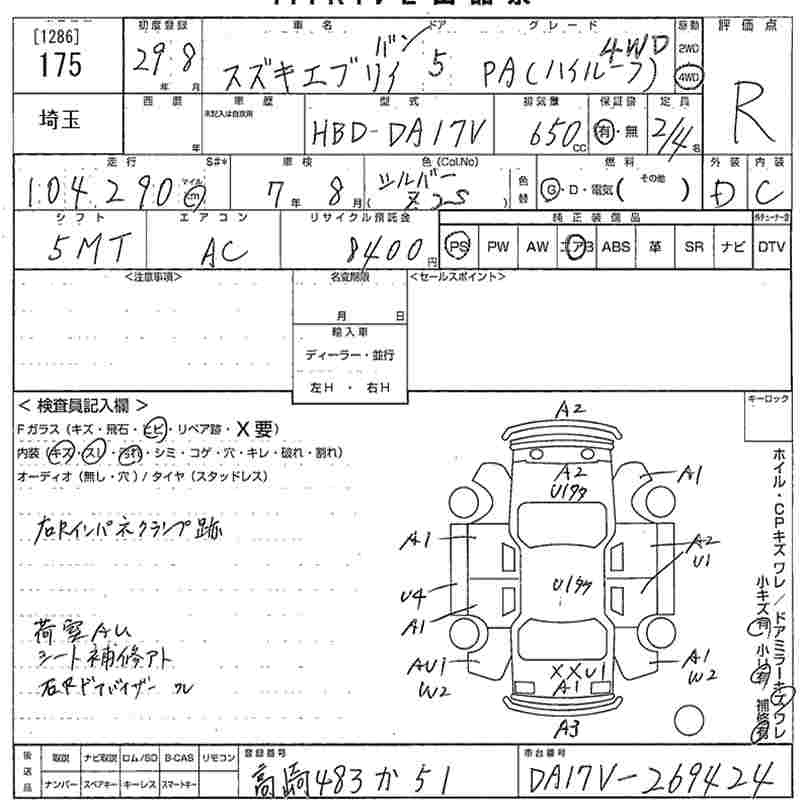 [1286]
175
埼玉
初度登録
29 8
年 月
車名
スズキエブリイ バン
ドア
5
グレード
4WD
PA(ハイルーフ)
駆動
2WD
4WD
評価点
R
西暦
年
車歴
未記入は自家用
型式
HBD-DA17V
排気量
650
CC
保証書
有・無
定員
2/4
名
走行
104,290
マイル
km
S#*
車検
7 年 8 月
色(Col.No)
シルバー
( Z2S )
色替
燃料
G・D・電気( その他 )
外装
D
内装
C
シフト
5MT
エアコン
AC
リサイクル預託金
8400
円
純正装備品
PS PW AW エアB ABS 革 SR ナビ DTV
<注意事項>
名変期限
月 日
輸入車
ディーラー・並行
左H ・ 右H
<セールスポイント>
キーロック
<検査員記入欄>
Fガラス(キズ・飛石・ヒビ・リペア跡・X要)
内装(キズ・スレ・汚れ・シミ・コゲ・穴・キレ・破れ・割れ)
オーディオ(無し・穴)/タイヤ(スタッドレス)
右Rインパネクランプ跡
荷室AU
シート補修アト
右Rドアバイザーワレ
A2
A2
U1タタ
A1
A1
A2
U1
U4
U1タタ
A1
AU1
W2
XXU1
A1
A1
W2
A3
ホイル・CPキズ ワレ/ドアミラーキズワレ
小キズ有 小U有 補修有
後送品
取説 ナビ取説 ロム/SD B-CAS リモコン
ナンバー スペアキー キーレス スマートキー
登録番号
高崎483か51
車台番号
DA17V-269424